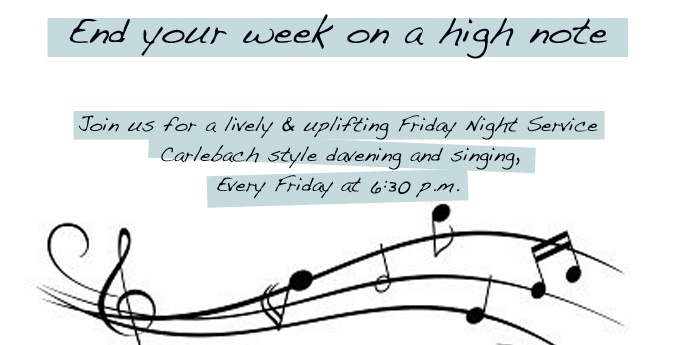 End your week on a high note
Join us for a lively & uplifting Friday Night Service
Carlebach style davening and singing,
Every Friday at 6:30 p.m.